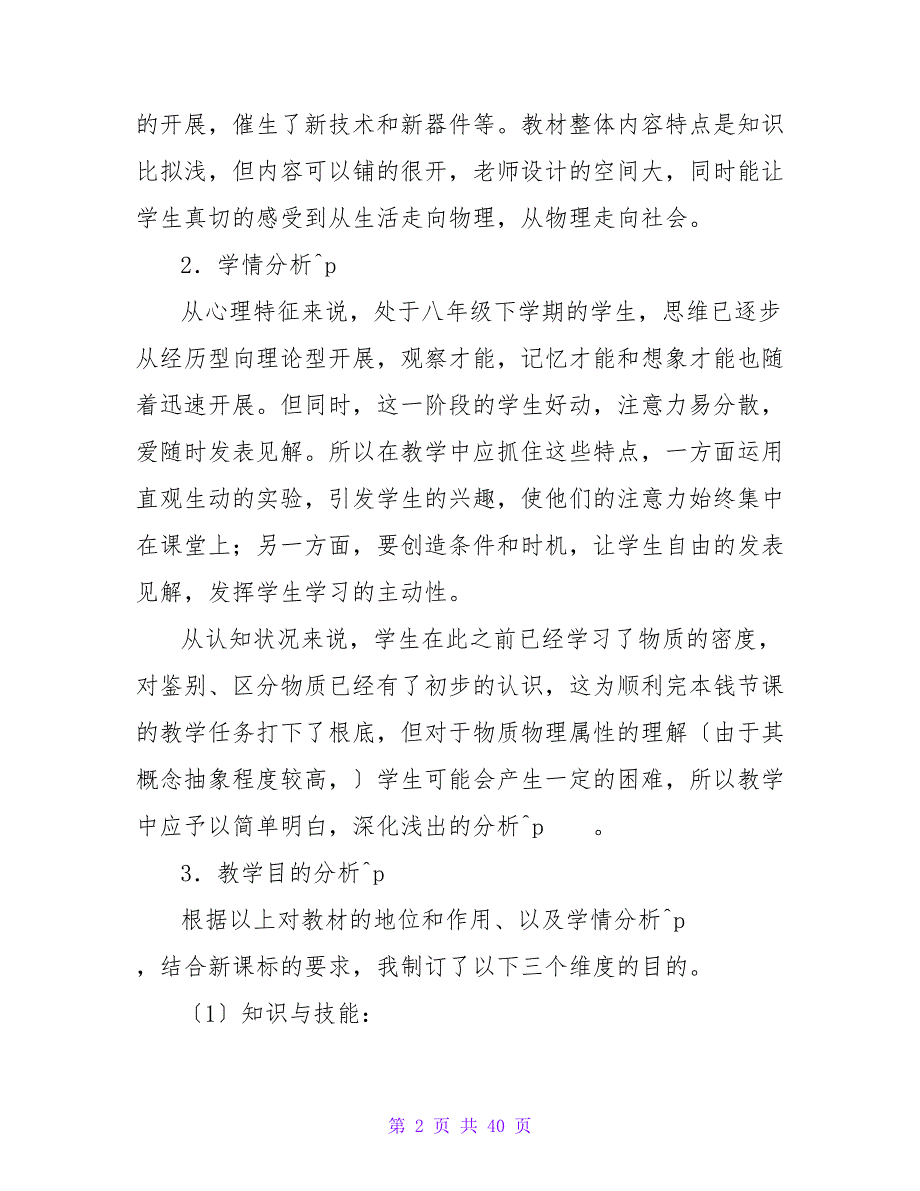 的开展，催生了新技术和新器件等。教材整体内容特点是知识
比拟浅，但内容可以铺的很开，老师设计的空间大，同时能让
学生真切的感受到从生活走向物理，从物理走向社会。
2．学情分析^p
从心理特征来说，处于八年级下学期的学生，思维已逐步
从经历型向理论型开展，观察才能，记忆才能和想象才能也随
着迅速开展。但同时，这一阶段的学生好动，注意力易分散，
爱随时发表见解。所以在教学中应抓住这些特点，一方面运用
直观生动的实验，引发学生的兴趣，使他们的注意力始终集中
在课堂上；另一方面，要创造条件和时机，让学生自由的发表
见解，发挥学生学习的主动性。
从认知状况来说，学生在此之前已经学习了物质的密度，
对鉴别、区分物质已经有了初步的认识，这为顺利完本钱节课
的教学任务打下了根底，但对于物质物理属性的理解〔由于其
概念抽象程度较高，〕学生可能会产生一定的困难，所以教学
中应予以简单明白，深化浅出的分析^p 。
3．教学目的分析^p
根据以上对教材的地位和作用、以及学情分析^p
，结合新课标的要求，我制订了以下三个维度的目的。
〔1〕知识与技能：
第 2 页 共 40 页